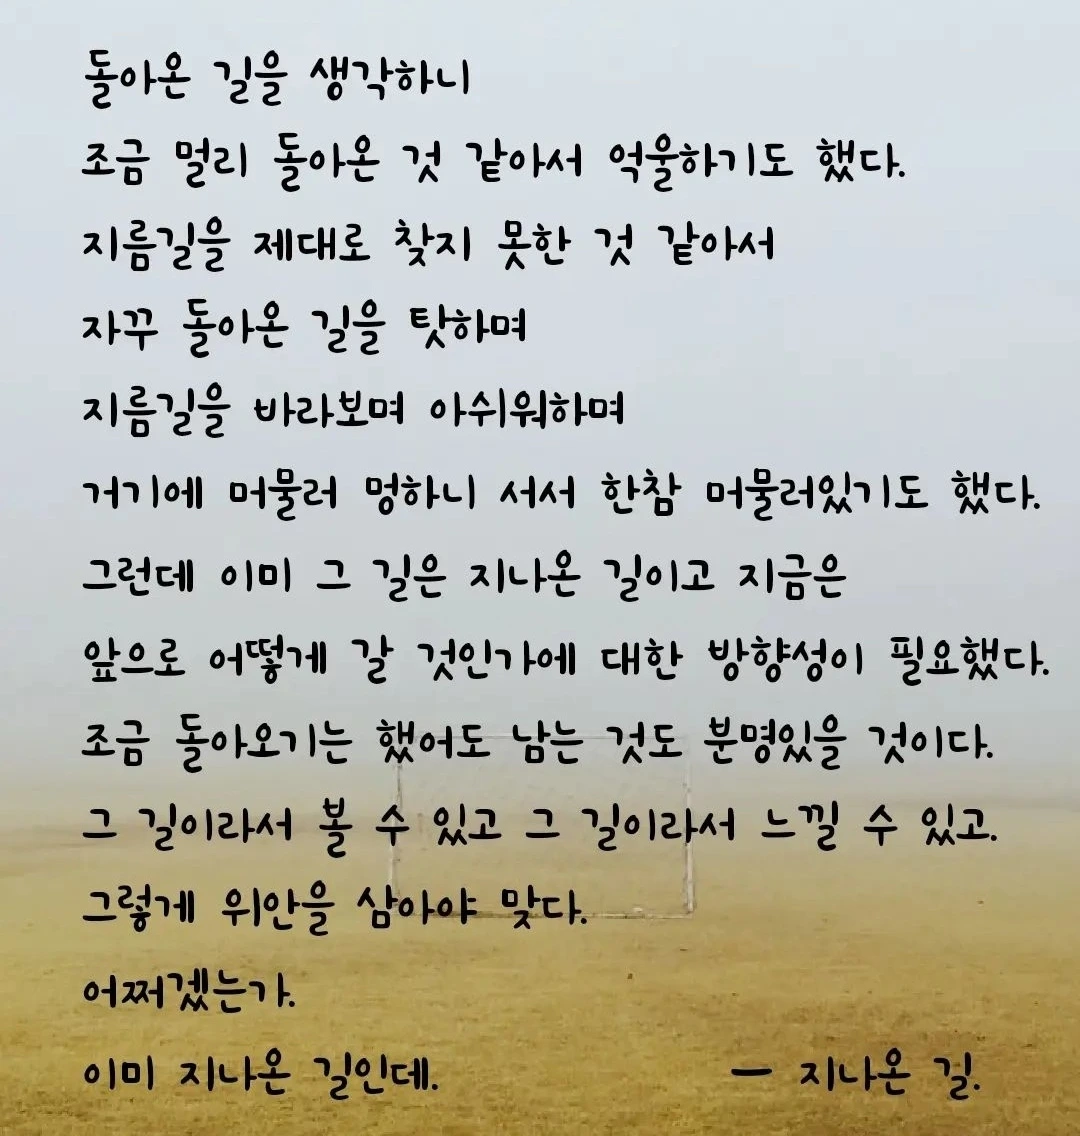 돌아온 길을 생각하니
조금 멀리 돌아온 것 같아서 억울하기도 했다.
지름길을 제대로 찾지 못한 것 같아서
자꾸 돌아온 길을 탓하며
지름길을 바라보며 아쉬워하며
거기에 머물러 멍하니 서서 한참 머물러있기도 했다.
그런데 이미 그 길은 지나온 길이고 지금은
앞으로 어떻게 갈 것인가에 대한 방향성이 필요했다.
조금 돌아오기는 했어도 남는 것도 분명있을 것이다.
그 길이라서 볼 수 있고 그 길이라서 느낄 수 있고.
그렇게 위안을 삼아야 맞다.
어쩌겠는가.
이미 지나온 길인데. — 지나온 길.